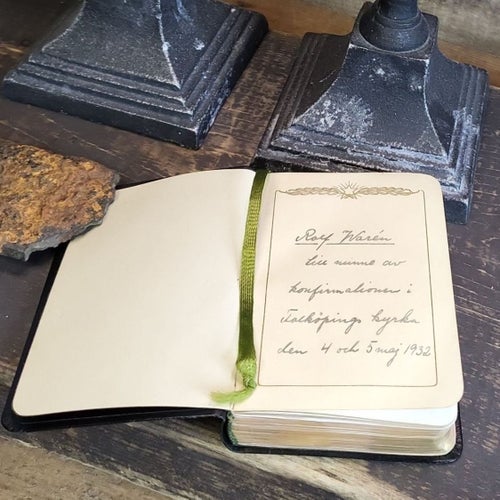 Rolf Warén
till minne av
konfirmationen i
Falköpings kyrka
den 4 och 5 maj 1932